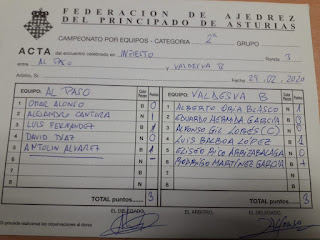 FEDERACION DE AJEDREZ
DEL PRINCIPADO DE ASTURIAS
CAMPEONATO POR EQUIPOS - CATEGORIA 2ª GRUPO
ACTA del encuentro celebrado en INFIESTO Ronda 3
entre AL PASO y VALDESVA B
Fecha 29-02-2020
EQUIPO: AL PASO
1 OMAR ALONSO B 0
2 ALEJANDRO CANTORA N 1
3 LUIS FERNANDEZ B
4 DAVID DIAZ N 0
5 ANTOLIN ALVAREZ B 1
N
TOTAL puntos 3
EQUIPO: VALDESVA B
1 ALBERTO ORIA BLASCO N 1
2 EDUARDO HERMIDA GARCIA B 0
3 ALFONSO GIL LOBES (C) N
4 LUIS BALBOA LOPEZ B 1
5 ELISEO RICO ARRIZABALAGA N 0
6 RODRIGO MARTINEZ GARCIA B
TOTAL puntos 3
EL DELEGADO, EL ARBITRO, EL DELEGADO,
Alfonso